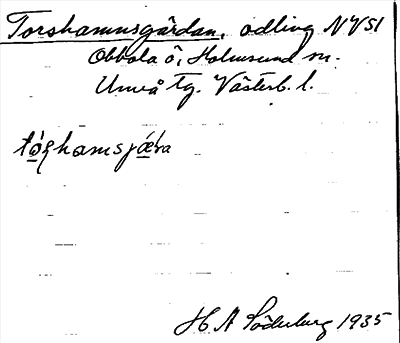 Torshamnsgärdan, odling NV51
Obbola ö, Holmsund sn.
Umeå tg. Västerb. l.
tǫ́ʂhamsjǽ̨ra
H A Söderberg 1935